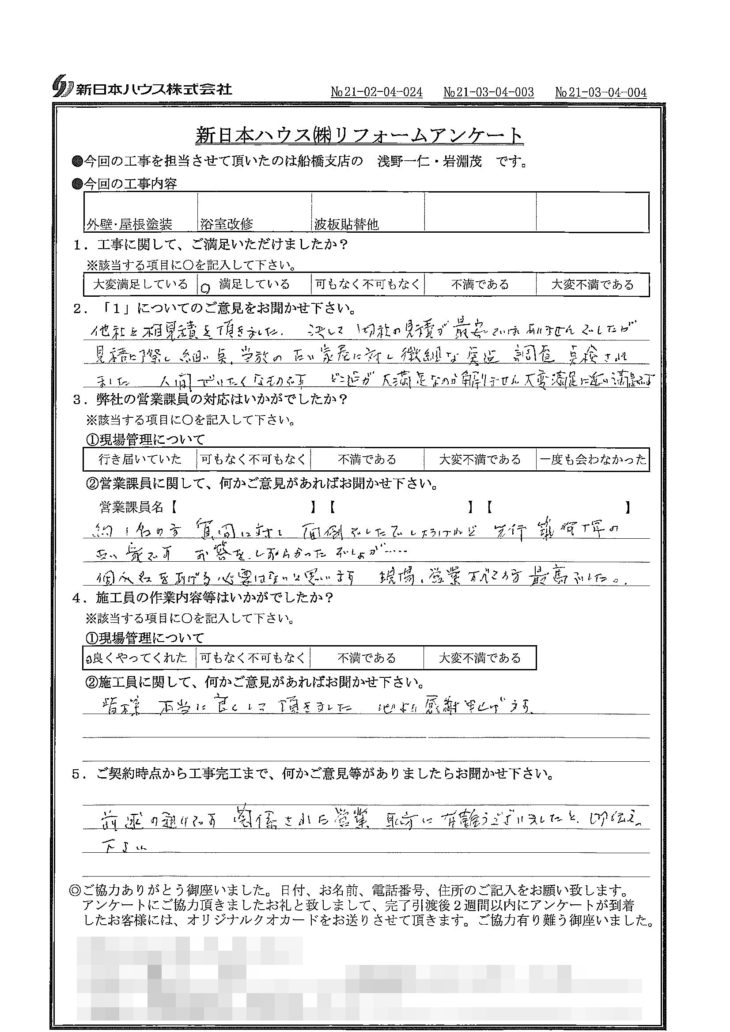 新日本ハウス株式会社
№21-02-04-024 №21-03-04-003 №21-03-04-004
新日本ハウス㈱リフォームアンケート
●今回の工事を担当させて頂いたのは船橋支店の 浅野一仁・岩淵茂 です。
●今回の工事内容
外壁・屋根塗装 浴室改修 波板貼替他
1．工事に関して、ご満足いただけましたか？
※該当する項目に○を記入して下さい。
大変満足している ○ 満足している 可もなく不可もなく 不満である 大変不満である
2．「1」についてのご意見をお聞かせ下さい。
他社と相見積を頂きました。 決して 御社の見積が 最安ではありませんでしたが
見積に際し 細い点 当方の 古い家屋に対し 微細な 調査 点検され
ました 人間でいたくなものです どこ迄が 大満足なのか 解りません 大変満足に近い満足です
3．弊社の営業課員の対応はいかがでしたか？
※該当する項目に○を記入して下さい。
①現場管理について
行き届いていた 可もなく不可もなく 不満である 大変不満である 一度も会わなかった
②営業課員に関して、何かご意見があればお聞かせ下さい。
営業課員名【 】【 】【 】
質問に対し 面倒でしたでしょうけれど 築 年の
古い家です お答えしずらかったでしょが……
個人名をあげる必要はないと思います 現場、営業 すべての方 最高でした。
4．施工員の作業内容等はいかがでしたか？
※該当する項目に○を記入して下さい。
①現場管理について
○良くやってくれた 可もなく不可もなく 不満である 大変不満である
②施工員に関して、何かご意見があればお聞かせ下さい。
皆様 本当に 良くして 頂きました 心より 感謝申上げます。
5．ご契約時点から工事完工まで、何かご意見等がありましたらお聞かせ下さい。
前述の通りです 関係された 営業 有難うございましたと、お伝え
下さい
◎ご協力ありがとう御座いました。日付、お名前、電話番号、住所のご記入をお願い致します。
アンケートにご協力頂きましたお礼と致しまして、完了引渡後２週間以内にアンケートが到着
したお客様には、オリジナルクオカードをお送りさせて頂きます。ご協力有り難う御座いました。